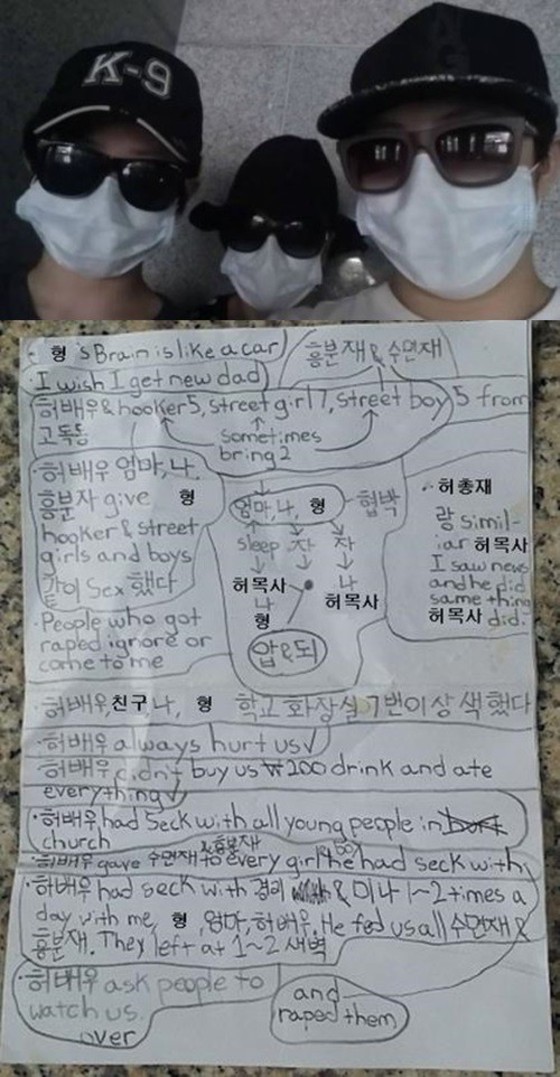 K-9
형 's Brain is like a car
흥분재 & 수면재
I wish I get new dad
허배우 & hooker 5, street girl 7, street boy 5 from
고독동
sometimes
bring 2
허배우 엄마, 나,
흥분자 give 형
hooker & street
girls and boys
같이 sex 했다
People who got
raped ignore or
come to me
엄마, 나, 형 협박
sleep 자 자
허목사 나
나 허목사
형
압&되
허총재
랑 simil-
iar 허목사
I saw news
and he did
same thing
허목사 did.
허배우, 친구, 나, 형 학교 화장실 7번 이상 색했다
허배우 always hurt us √
허배우 didn't buy us ₩200 drink and ate
everything √
허배우 had seck with all young people in
church
&흥분재
허배우 gave 수면재 to every girl he had seck with,
허배우 had seck with 경리 & 미나 1~2 times a
day with me, 형, 엄마, 허배우. He fed us all 수면재 &
흥분재. They left at 1~2 새벽
허배우 ask people to
watch us.
over
and
raped them